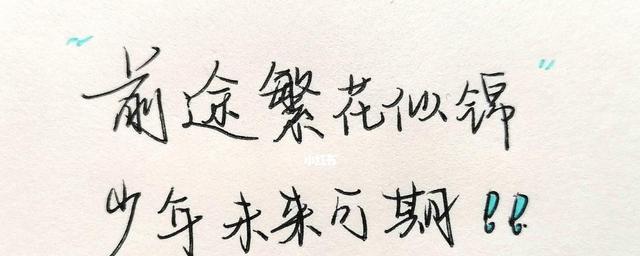 “前途繁花似锦”
小红书
少年未来可期!!